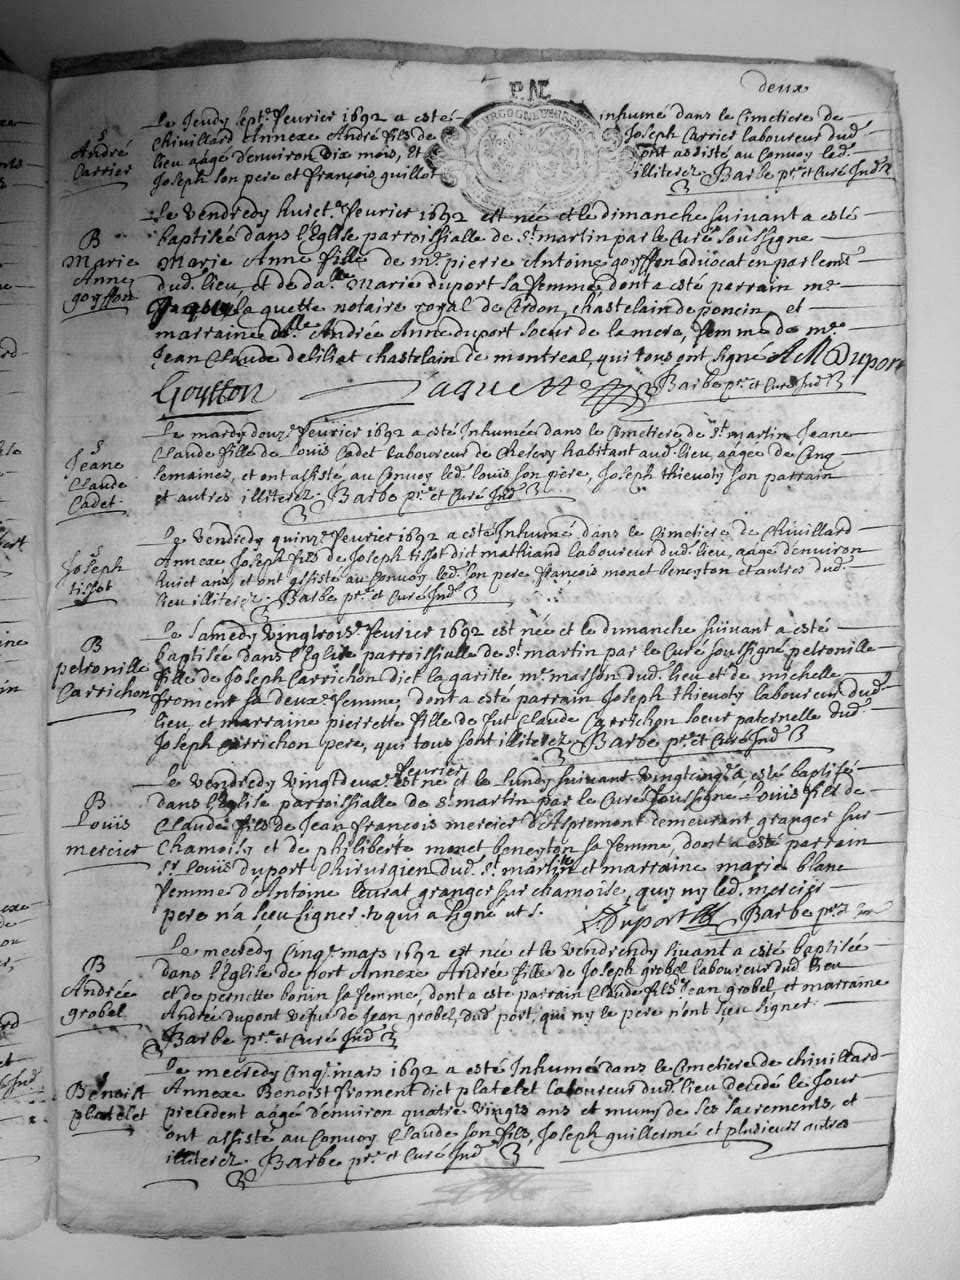 deux
P. NE.
BOURGOGNE
S
André
Carrier
Le Jeudy sept.e fevrier 1692 a esté inhumé dans le Cimetiere de
Chivillard Annexe André fils de Joseph Carrier laboureur dud.
lieu aagé d'environ dix mois, Et ont assisté au Convoy led.
Joseph son pere et françois guillot illiterez. Barbe pr. et Curé Ind
B
Marie
Anne
goyffon
Le vendredy huict.e fevrier 1692 est née et le dimanche suivant a esté
baptisée dans l'Eglise parroissialle de St. martin par le Curé soussigné
Marie Anne fille de mr. pierre Antoine goyffon advocat en parlemt.
dud. lieu, et de da.lle Marie duport sa femme dont a esté parrain mr.
laquette notaire royal de Cerdon, chastelain de poncin, et
marraine d.lle Andrée Anne duport soeur de la mere, femme de mr.
Jean Claude deliliat chastelain de montreal, qui tous ont signé AM Duport
Goyffon Jaquette Barbe pr. et Curé Ind
S
Jeane
Claude
Cadet.
Le mardy douz.e fevrier 1692 a esté Inhumée dans le Cimetiere de St. martin Jeane
Claude fille de Louis Cadet laboureur de Chesery habitant aud. lieu, aagée de Cinq
semaines, et ont assisté au Convoy led. louis son pere, Joseph thievoty son parrain
et autres illiterez. Barbe pr. et Curé Ind
S
Joseph
tissot
Le vendredy quinz.e fevrier 1692 a esté Inhumé dans le Cimetiere de Chivillard
Annexe Joseph fils de Joseph tissot dict mathiand laboureur dud. lieu, aagé d'environ
huict ans, et ont assisté au Convoy led. son pere françois monet beneyton et autres dud.
lieu illiterez. Barbe pr. et Curé Ind
B
petronille
Carrichon
Le Samedy vingtrois.e fevrier 1692 est née et le dimanche suivant a esté
baptisée dans l'Eglise parroissialle de St. martin par le Curé soussigné petronille
fille de Joseph Carrichon dict la garitte mr. masson dud. lieu et de michelle
froment sa deux.e femme, dont a esté parrain Joseph thievoty laboureur dud.
lieu et marraine pierrette fille de fut Claude Carrichon soeur paternelle dud.
Joseph Carrichon pere, qui tous sont illiterez Barbe pr. et Curé Ind
B
Louïs
mercier
Le vendredy vingtdeux.e fevrier est né et le lundy suivant vingtcinq.e a esté baptisé
dans l'Eglise parroissialle de St. martin par le Curé soussigné Louïs fils de
Claude fils de Jean françois mercier d'Aspremont demeurant granger sur
Chamoise, et de philiberte monet beneyton sa femme, dont a esté parrain
Sr. Louïs duport Chirurgien dud. St. martin et marraine marie blanc
femme d'Antoine leurat granger sur chamoise, qui ny led. mercier
pere n'a sçeu signer. Duport Barbe pr.
B
Andrée
grobel
Le mecredy Cinq.e mars 1692 est née et le vendredy suivant a esté baptisée
dans l'Eglise de port Annexe Andrée fille de Joseph grobel laboureur dud. lieu
et de pernette bonin sa femme, dont a esté parrain Claude fils Jean grobel, et marraine
Andrée dupont vefve de Jean grobel, dud. port, qui ny le pere n'ont sçeu signer.
Barbe pr. et Curé Ind
S
Benoist
platelet
Le mecredy Cinq.e mars 1692 a esté Inhumé dans le Cimetiere de chivillard
Annexe Benoist froment dict platelet laboureur dud. lieu decedé le Jour
precedent aagé d'environ quatre vingts ans et muny de ses sacrements, et
ont assisté au Convoy Claude son fils, Joseph guillermé et plusieurs autres
illiterez. Barbe pr. et Curé Ind